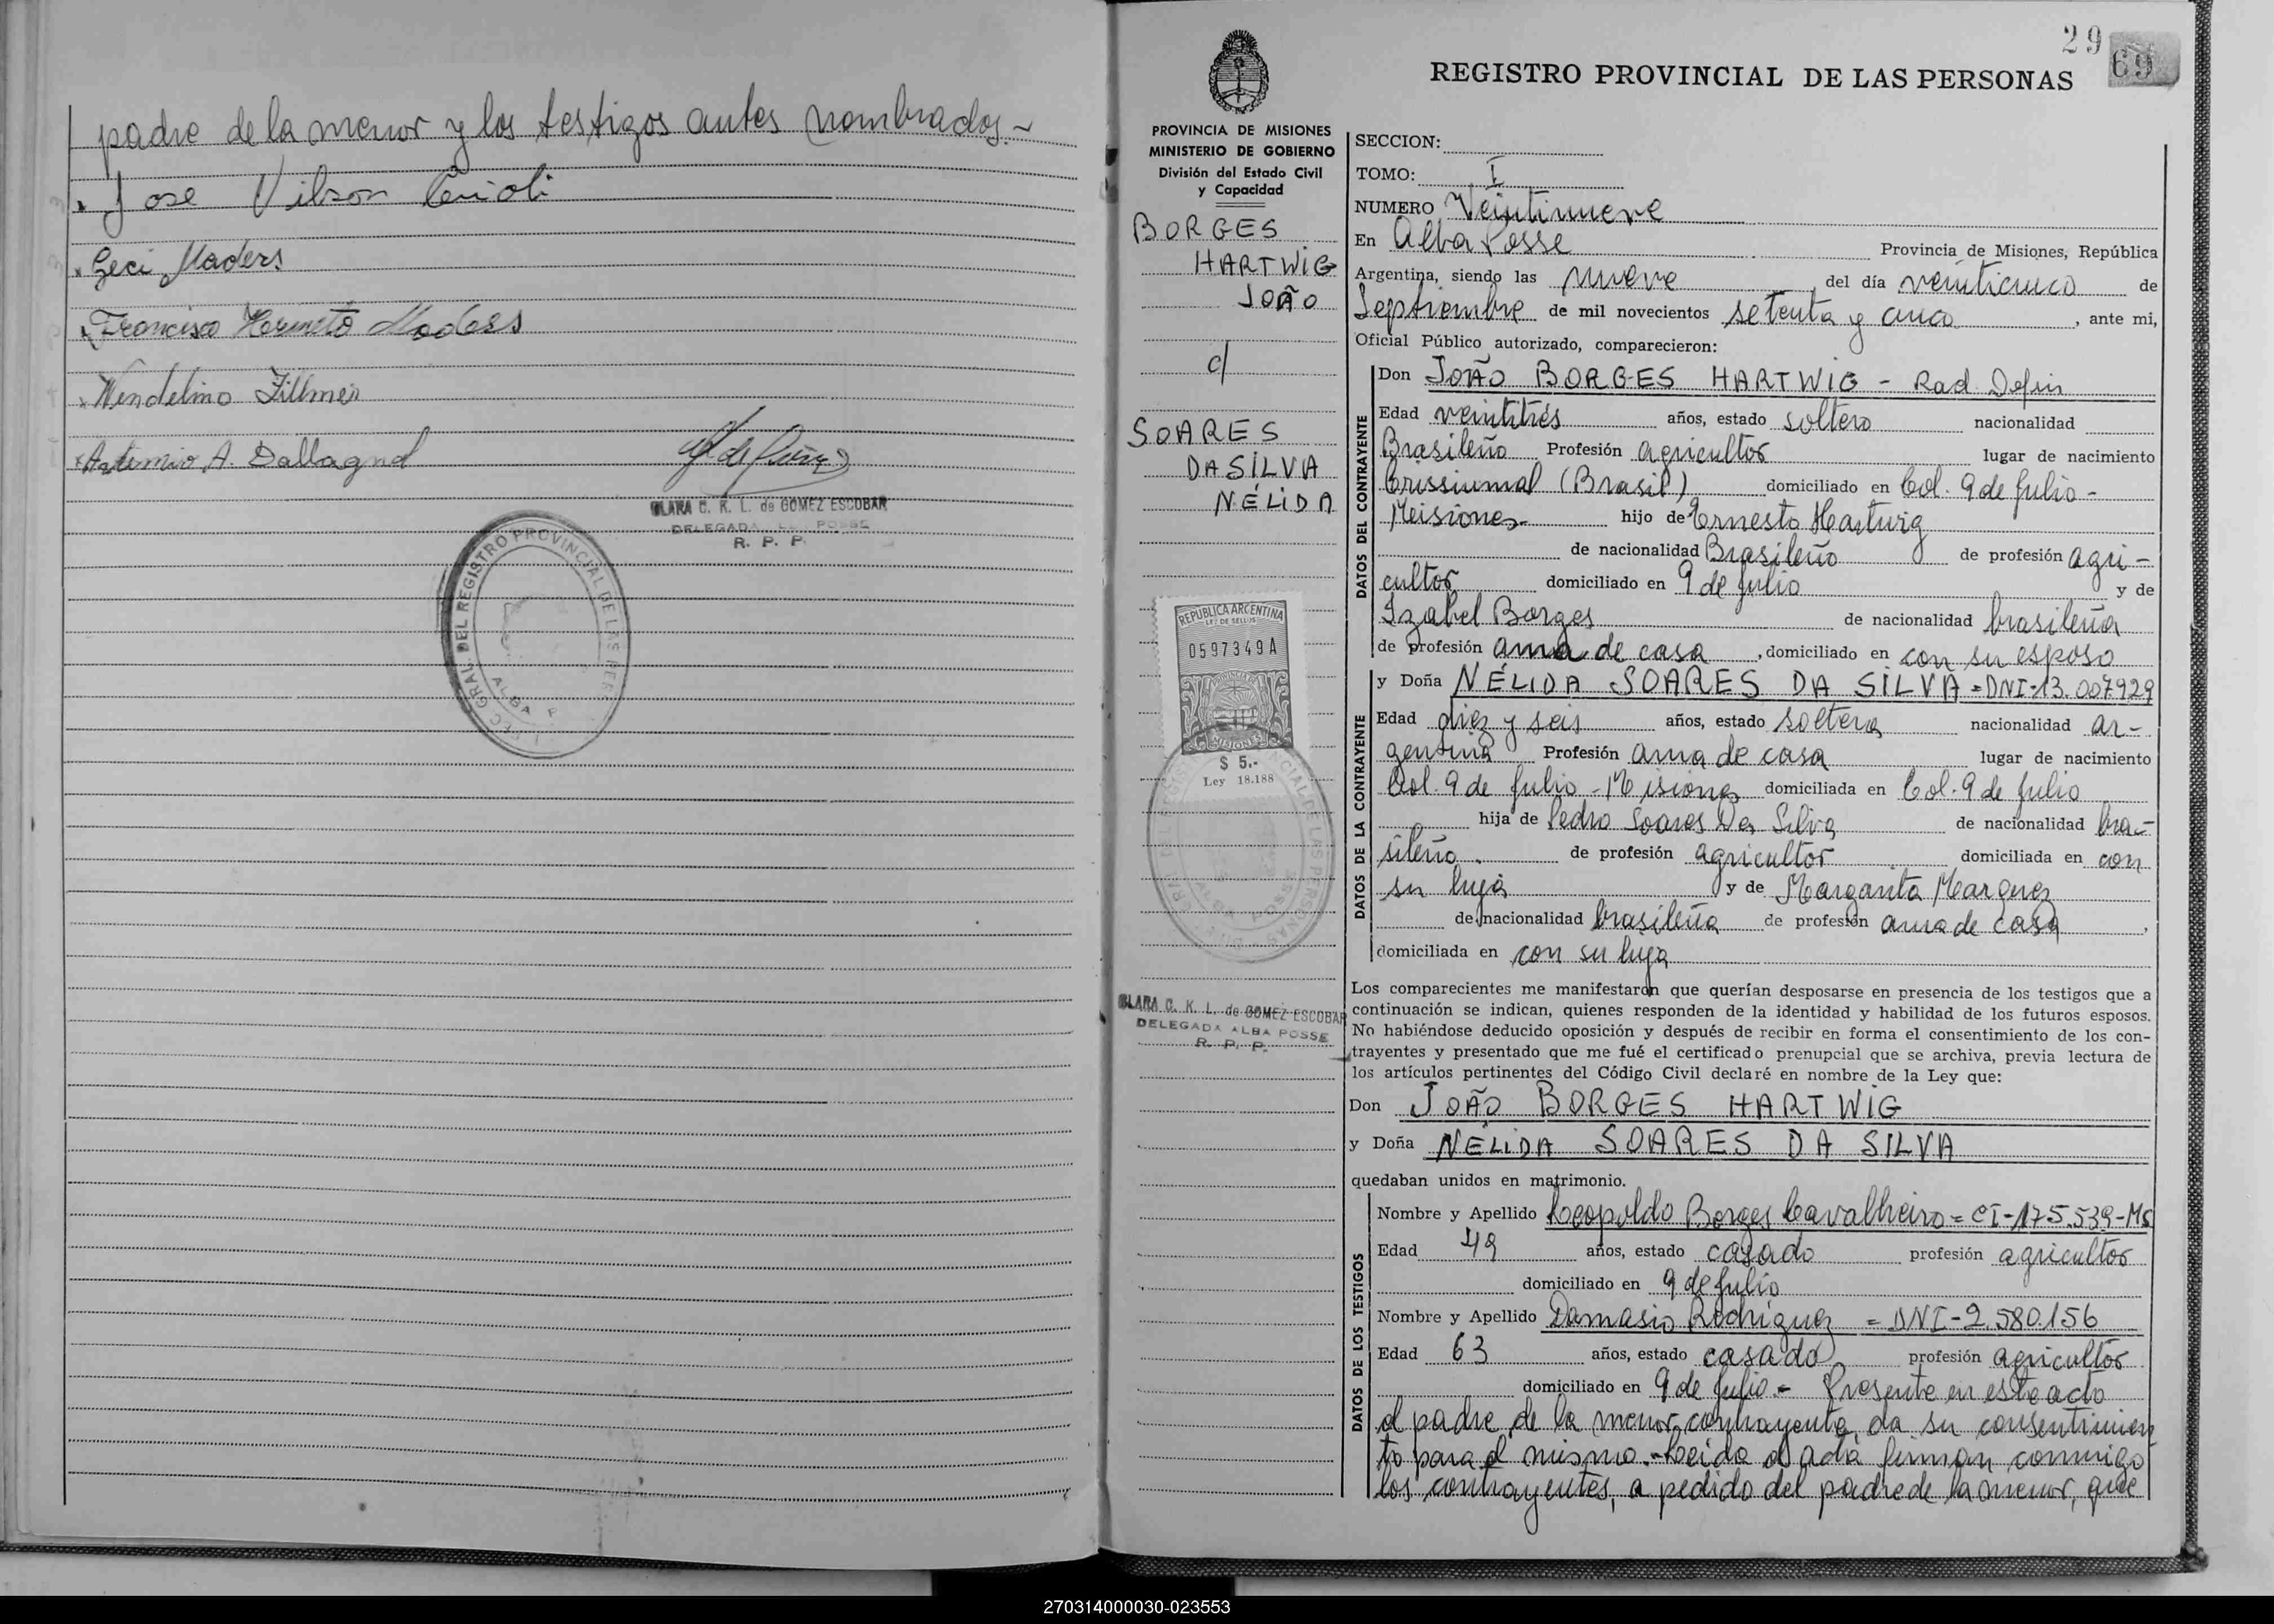 padre de la menor y los testigos antes nombrados.-
Jose Vilson
Geci Maders
Francisco Hermeto Maders
Wendelino Fillmer
Artemio A. Dallagnol
CLARA C. K. L. de GOMEZ ESCOBAR
DELEGADA POSSE
R. P. P.
GRAL. DEL REGISTRO PROVINCIAL DE LAS PER
ALBA P
29
69
REGISTRO PROVINCIAL DE LAS PERSONAS
PROVINCIA DE MISIONES
MINISTERIO DE GOBIERNO
División del Estado Civil
y Capacidad
BORGES
HARTWIG
JOÃO
c/
SOARES
DA SILVA
NÉLIDA
REPUBLICA ARGENTINA
LEY DE SELLOS
0597349A
MISIONES
$ 5.-
Ley 18.188
CLARA C. K. L. de GOMEZ ESCOBAR
DELEGADA ALBA POSSE
R. P. P.
SECCION:
TOMO: I
NUMERO Veintinueve
En Alba Posse Provincia de Misiones, República
Argentina, siendo las nueve del día veinticinco de
Septiembre de mil novecientos setenta y cinco, ante mi,
Oficial Público autorizado, comparecieron:
DATOS DEL CONTRAYENTE
Don JOÃO BORGES HARTWIG - Rad. Defin
Edad veintitrés años, estado soltero nacionalidad
Brasileño Profesión agricultor lugar de nacimiento
Crissiumal (Brasil) domiciliado en Col. 9 de Julio -
Misiones- hijo de Ernesto Hartwig
de nacionalidad Brasileño de profesión agri-
cultor domiciliado en 9 de Julio y de
Izabel Borges de nacionalidad brasileña
de profesión ama de casa, domiciliado en con su esposo
DATOS DE LA CONTRAYENTE
y Doña NÉLIDA SOARES DA SILVA = DNI-13.007929
Edad diez y seis años, estado soltera nacionalidad ar-
gentina Profesión ama de casa lugar de nacimiento
Col. 9 de Julio - Misiones domiciliada en Col. 9 de Julio
hija de Pedro Soares Da Silva de nacionalidad bra-
sileño. de profesión agricultor domiciliada en con
su hija y de Margarita Marquez
de nacionalidad brasileña de profesión ama de casa,
domiciliada en con su hija
Los comparecientes me manifestaron que querían desposarse en presencia de los testigos que a
continuación se indican, quienes responden de la identidad y habilidad de los futuros esposos.
No habiéndose deducido oposición y después de recibir en forma el consentimiento de los con-
trayentes y presentado que me fué el certificado prenupcial que se archiva, previa lectura de
los artículos pertinentes del Código Civil declaré en nombre de la Ley que:
Don JOÃO BORGES HARTWIG
y Doña NÉLIDA SOARES DA SILVA
quedaban unidos en matrimonio.
DATOS DE LOS TESTIGOS
Nombre y Apellido Leopoldo Borges Cavalheiro = CI-175.539-Ms
Edad 49 años, estado casado profesión agricultor
domiciliado en 9 de Julio
Nombre y Apellido Damasio Rodriguez = DNI-2.580.156
Edad 63 años, estado casado profesión agricultor
domiciliado en 9 de Julio - Presente en este acto
el padre de la menor contrayente, da su consentimien
to para el mismo.-Leída el acta firman conmigo
los contrayentes, a pedido del padre de la menor, que
270314000030-023553